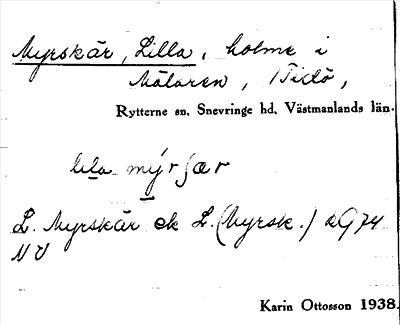 Myrskär, Lilla, holme i
Mälaren, Tidö,
Rytterne sn. Snevringe hd. Västmanlands län.
lila mýrʃær
L. Myrskär ek L. (Myrsk.)
NV
Karin Ottosson 1938.